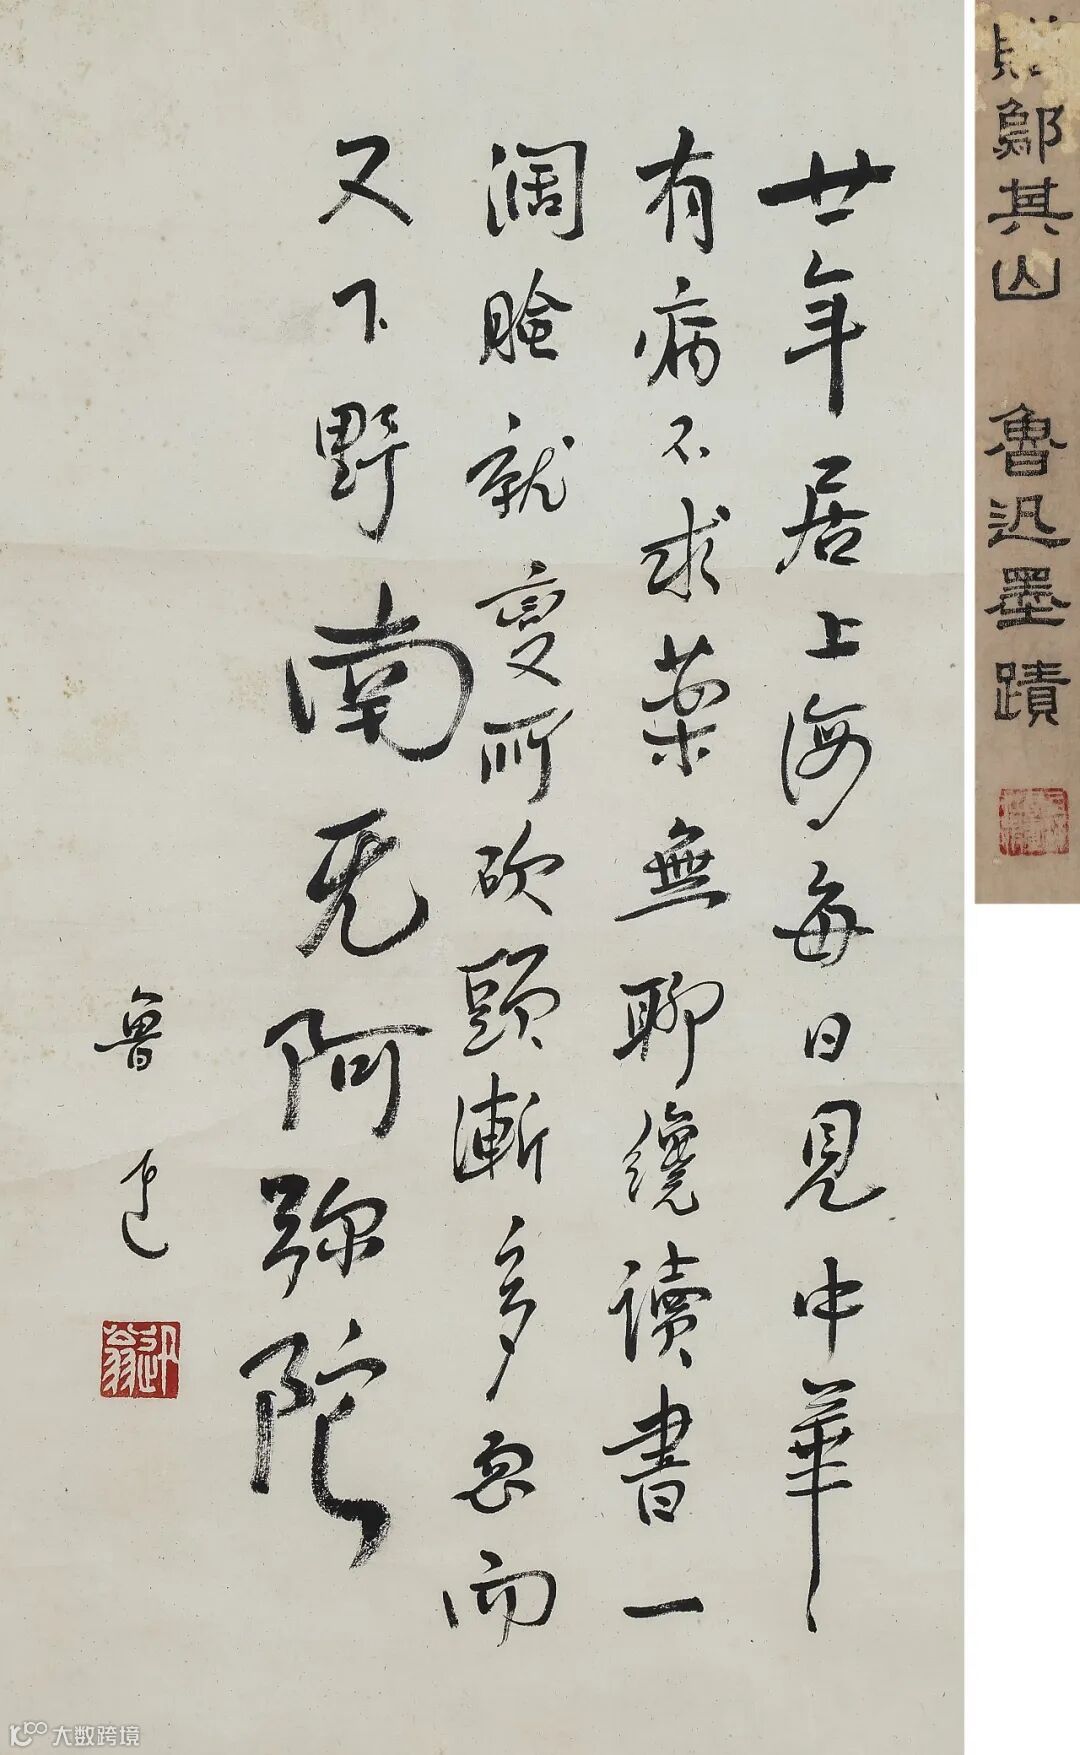 贈鄔其山 魯迅墨蹟
廿年居上海每日見中華
有病不求薬無聊纔讀書一
濶臉就變所砍頭漸多忽而
又下野南无阿弥陀
魯迅
迅翁
大数跨境